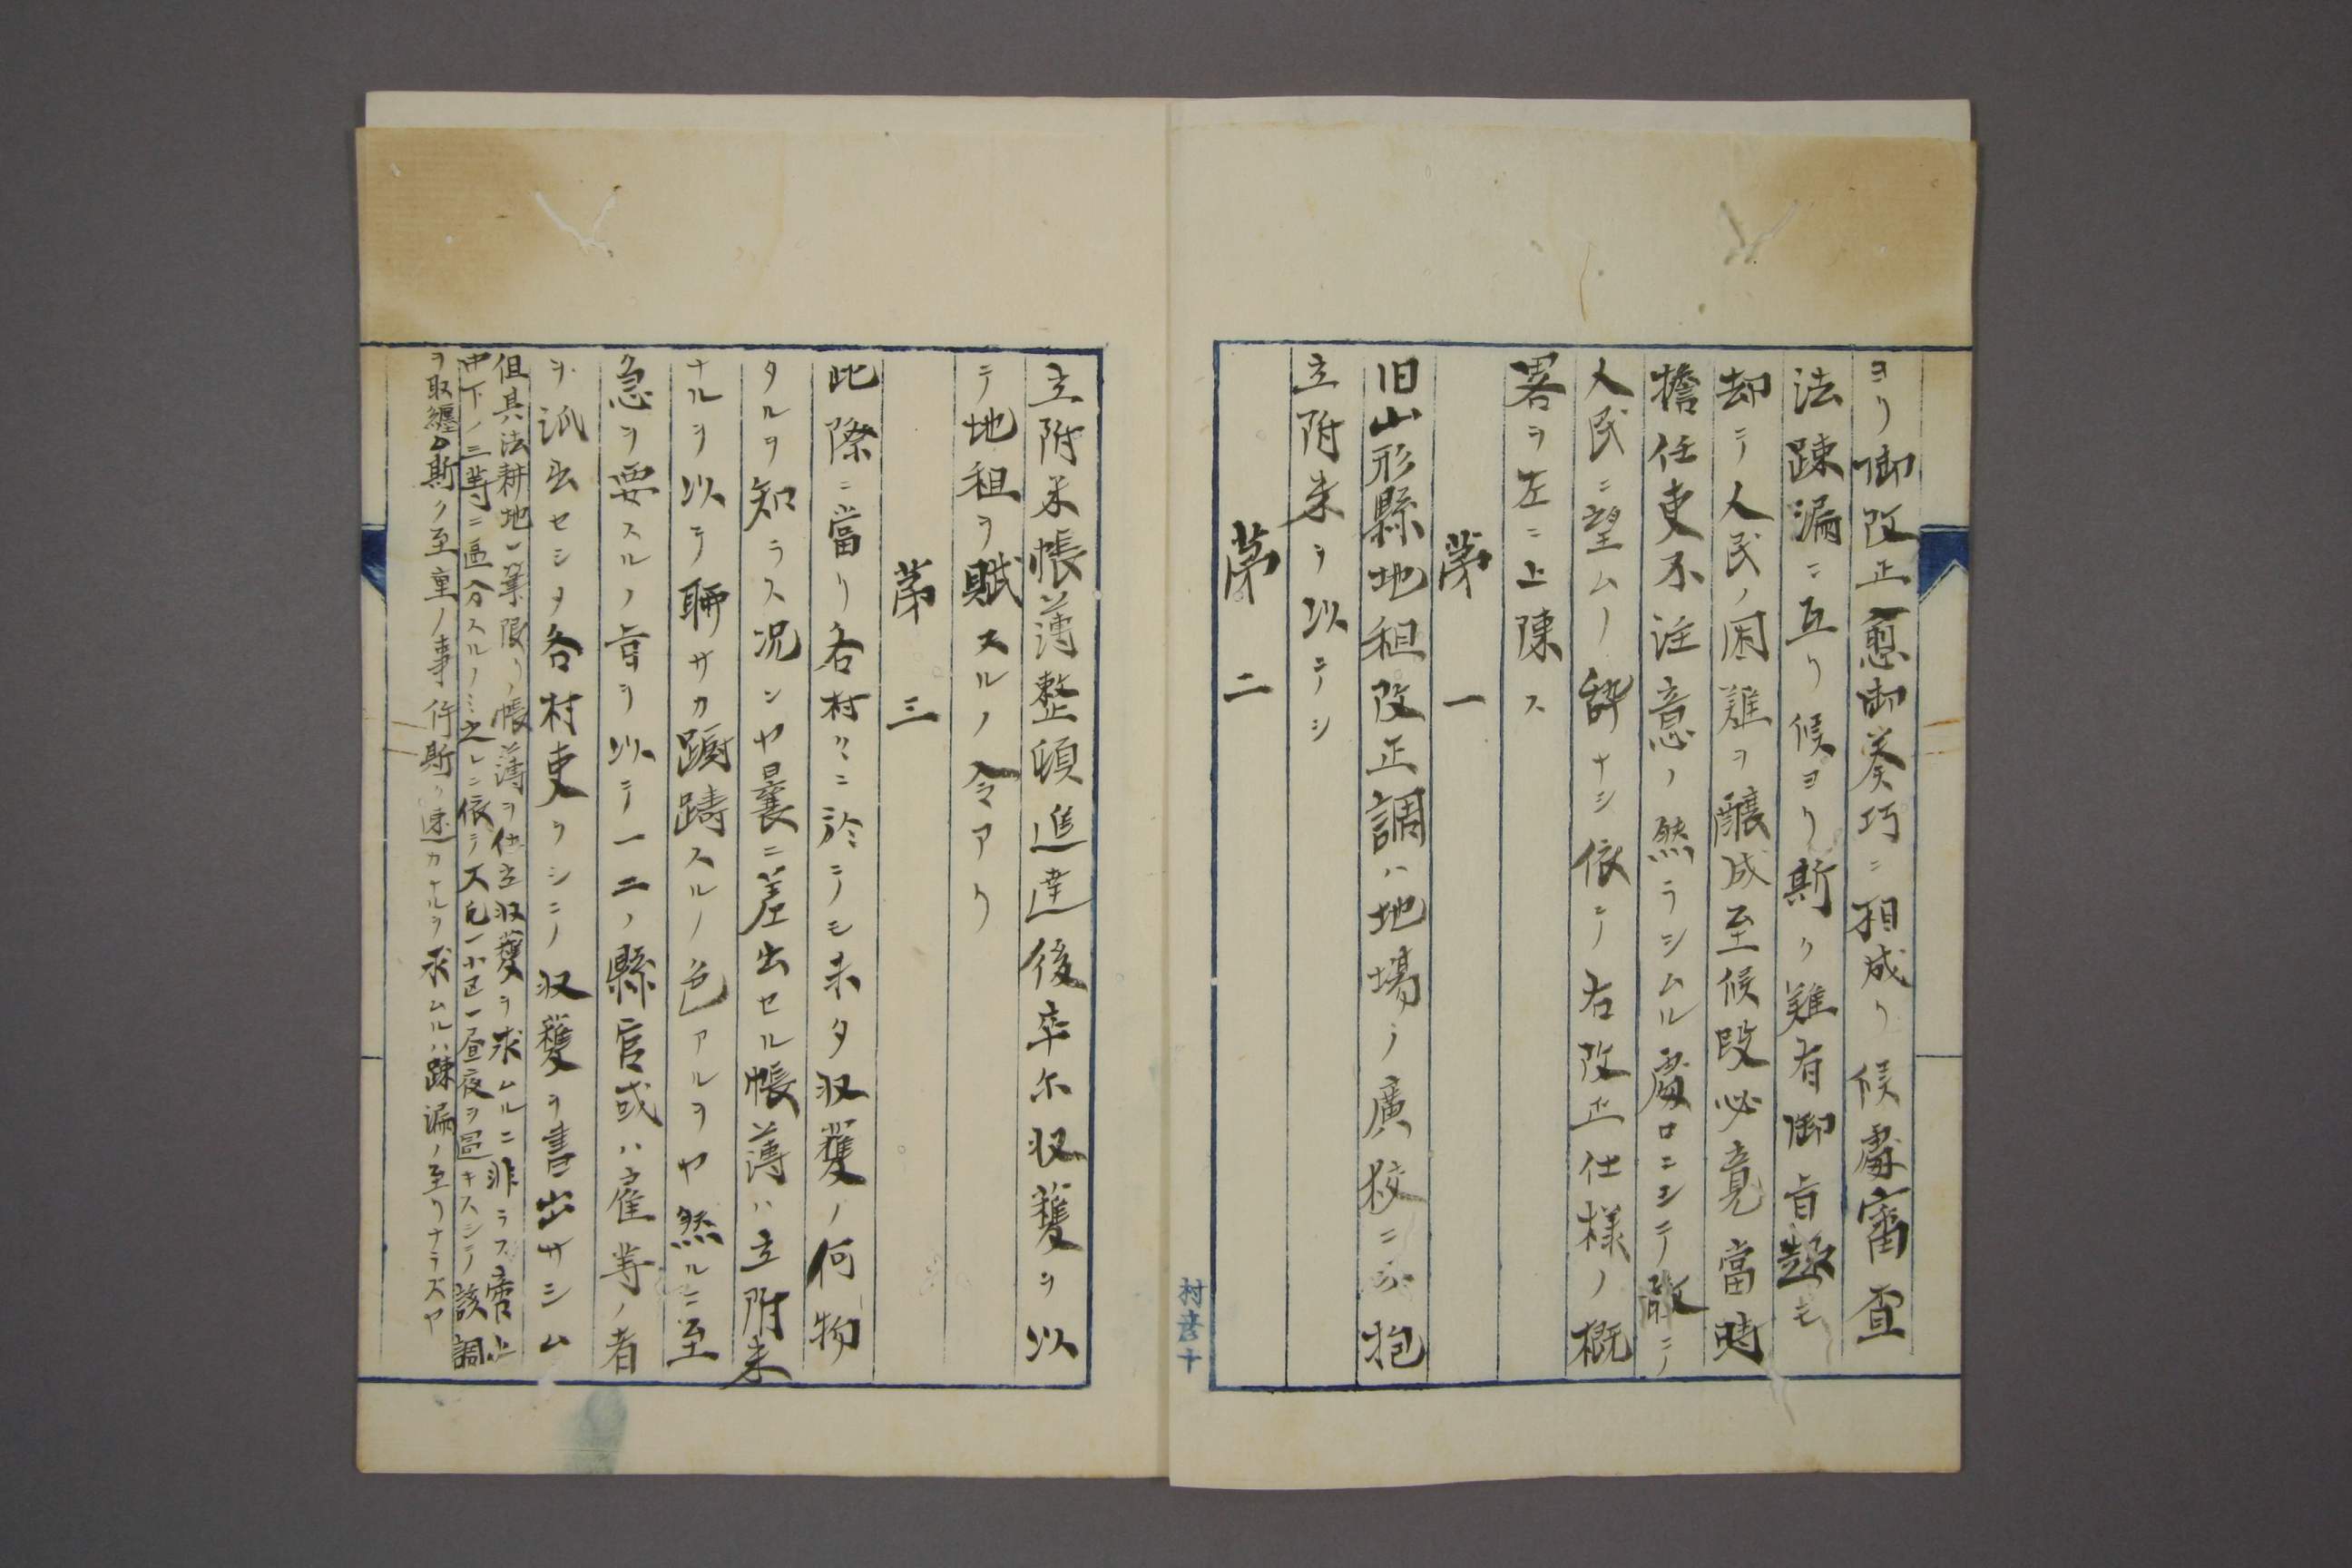 ヨリ御改正愈御美巧ニ相成リ候處審査
法踈漏ニ亙リ候ヨリ斯ク難有御旨趣モ
却テ人民ノ困難ヲ醸成至候段必竟當時
擔任吏不注意ノ然ラシムル處ロニシテ敢テ
人民ニ望ムノ辞ナシ依テ右改正仕様ノ概
畧ヲ左ニ上陳ス
第一
旧山形縣地租改正調ハ地場ノ廣狹ニ不抱
立附米ヲ以テシ
第二
立附米帳薄整頓進達後卒尓収獲ヲ以
テ地租ヲ賦スルノ令アリ
第三
此際ニ當リ各村々ニ於テモ未タ収獲ノ何物
タルヲ知ラス况ンヤ曩ニ差出セル帳薄ハ立附米
ナルヲ以テ聊サカ躕躊スルノ色アルヲヤ然ルニ至
急ヲ要スルノ旨ヲ以テ一二ノ縣官或ハ雇等ノ者
ヲ派出セシタ各村吏ヲシテ収獲ヲ書出サシム
但其法耕地一筆限リノ帳薄ヲ仕立収獲ヲ求ムルニ非ラス啻上
中下ノ三等ニ區分スルノミ之レニ依テ大凡一小区一昼夜ヲ過キスシテ該調
ヲ取纏ム斯ク至重ノ事件斯ク速カナルヲ求ムルハ踈漏ノ至リナラズヤ
村彦十